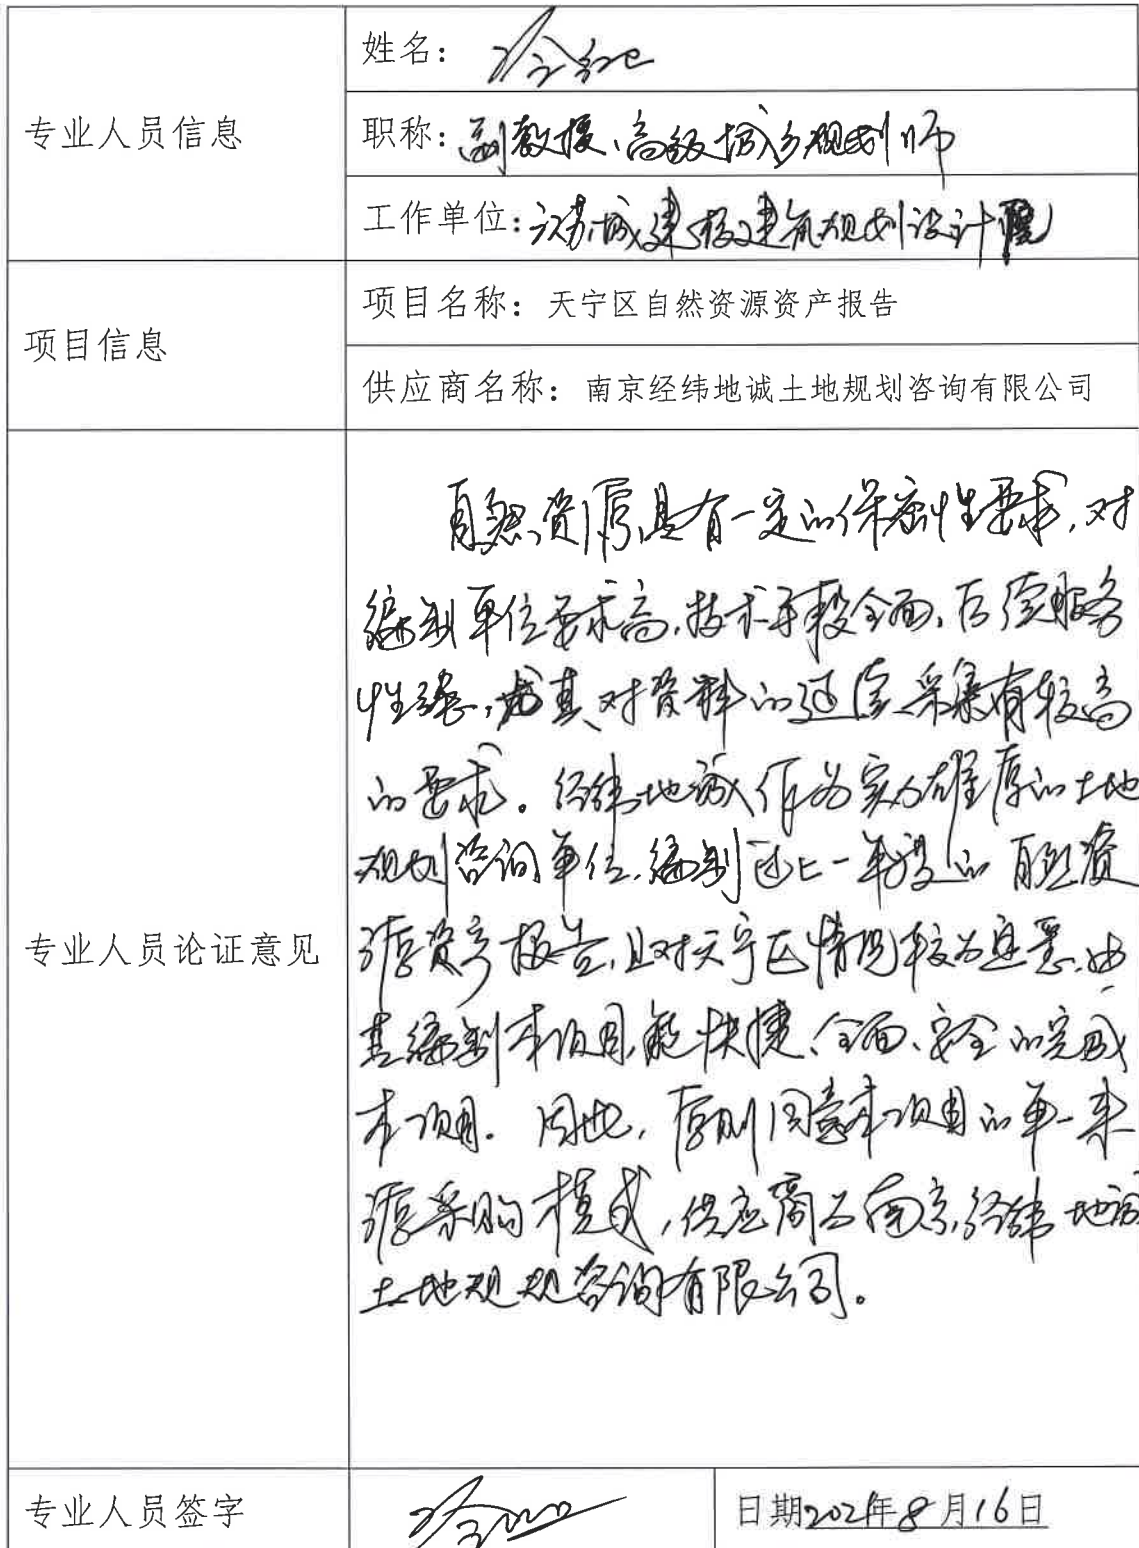 专业人员信息
姓名：冷
职称：副教授、高级城乡规划师
工作单位：江苏城建校建筑规划设计院
项目信息
项目名称：天宁区自然资源资产报告
供应商名称：南京经纬地诚土地规划咨询有限公司
专业人员论证意见
自然资源具有一定的保密性要求，对
编制单位要求高，技术手段全面，后续服务
性强，尤其对资料的延续采集有较高
的要求。经纬地诚作为实力雄厚的土地
规划咨询单位，编制过上一年度的自然资
源资产报告，且对天宁区情况较为熟悉，由
其编制本项目，能快捷、全面、安全的完成
本项目。因此，原则同意本项目的单一来
源采购模式，供应商为南京经纬地诚
土地规规咨询有限公司。
专业人员签字
日期2021年8月16日